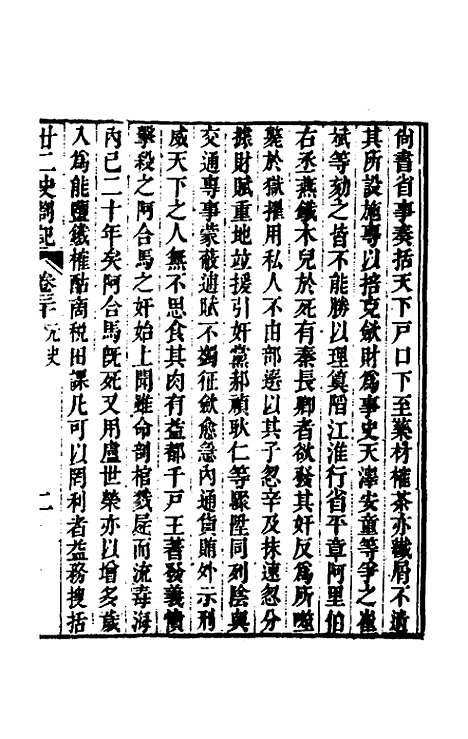 尚書省事奏括天下戸口下至藥材榷茶亦纖屑不遺
其所設施專以掊克斂財爲事史天澤安童等爭之崔
斌等劾之皆不能勝以理寘陷江淮行省平章阿里伯
右丞燕鐵木兒於死有秦長卿者欲發其奸反爲所噬
斃於獄擢用私人不由部選以其子忽辛及抹速忽分
據財賦重地並援引奸黨郝禎耿仁等驟陞同列陰與
交通專事蒙蔽逋賦不蠲征斂愈急內通貨賄外示刑
威天下之人無不思食其肉有益都千戸王著發義憤
擊殺之阿合馬之奸始上聞雖命剖棺戮屍而流毒海
內已二十年矣阿合馬旣死又用盧世榮亦以增多歲
入爲能鹽鐵榷酤商稅田課凡可以罔利者益務搜括
廿二史劄記 卷三十 元史 二